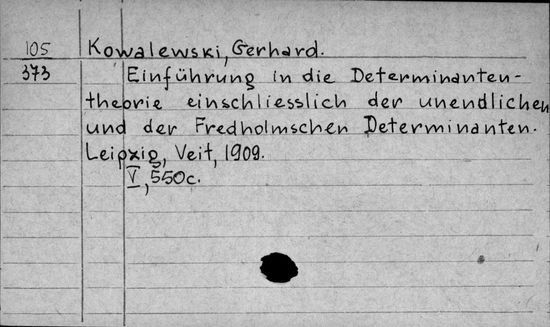 105 Kowalewski, Gerhard.
373 Einführung in die Determinanten-
theorie einschliesslich der unendlichen
und der Fredholmschen Determinanten.
Leipzig, Veit, 1909.
V, 550c.